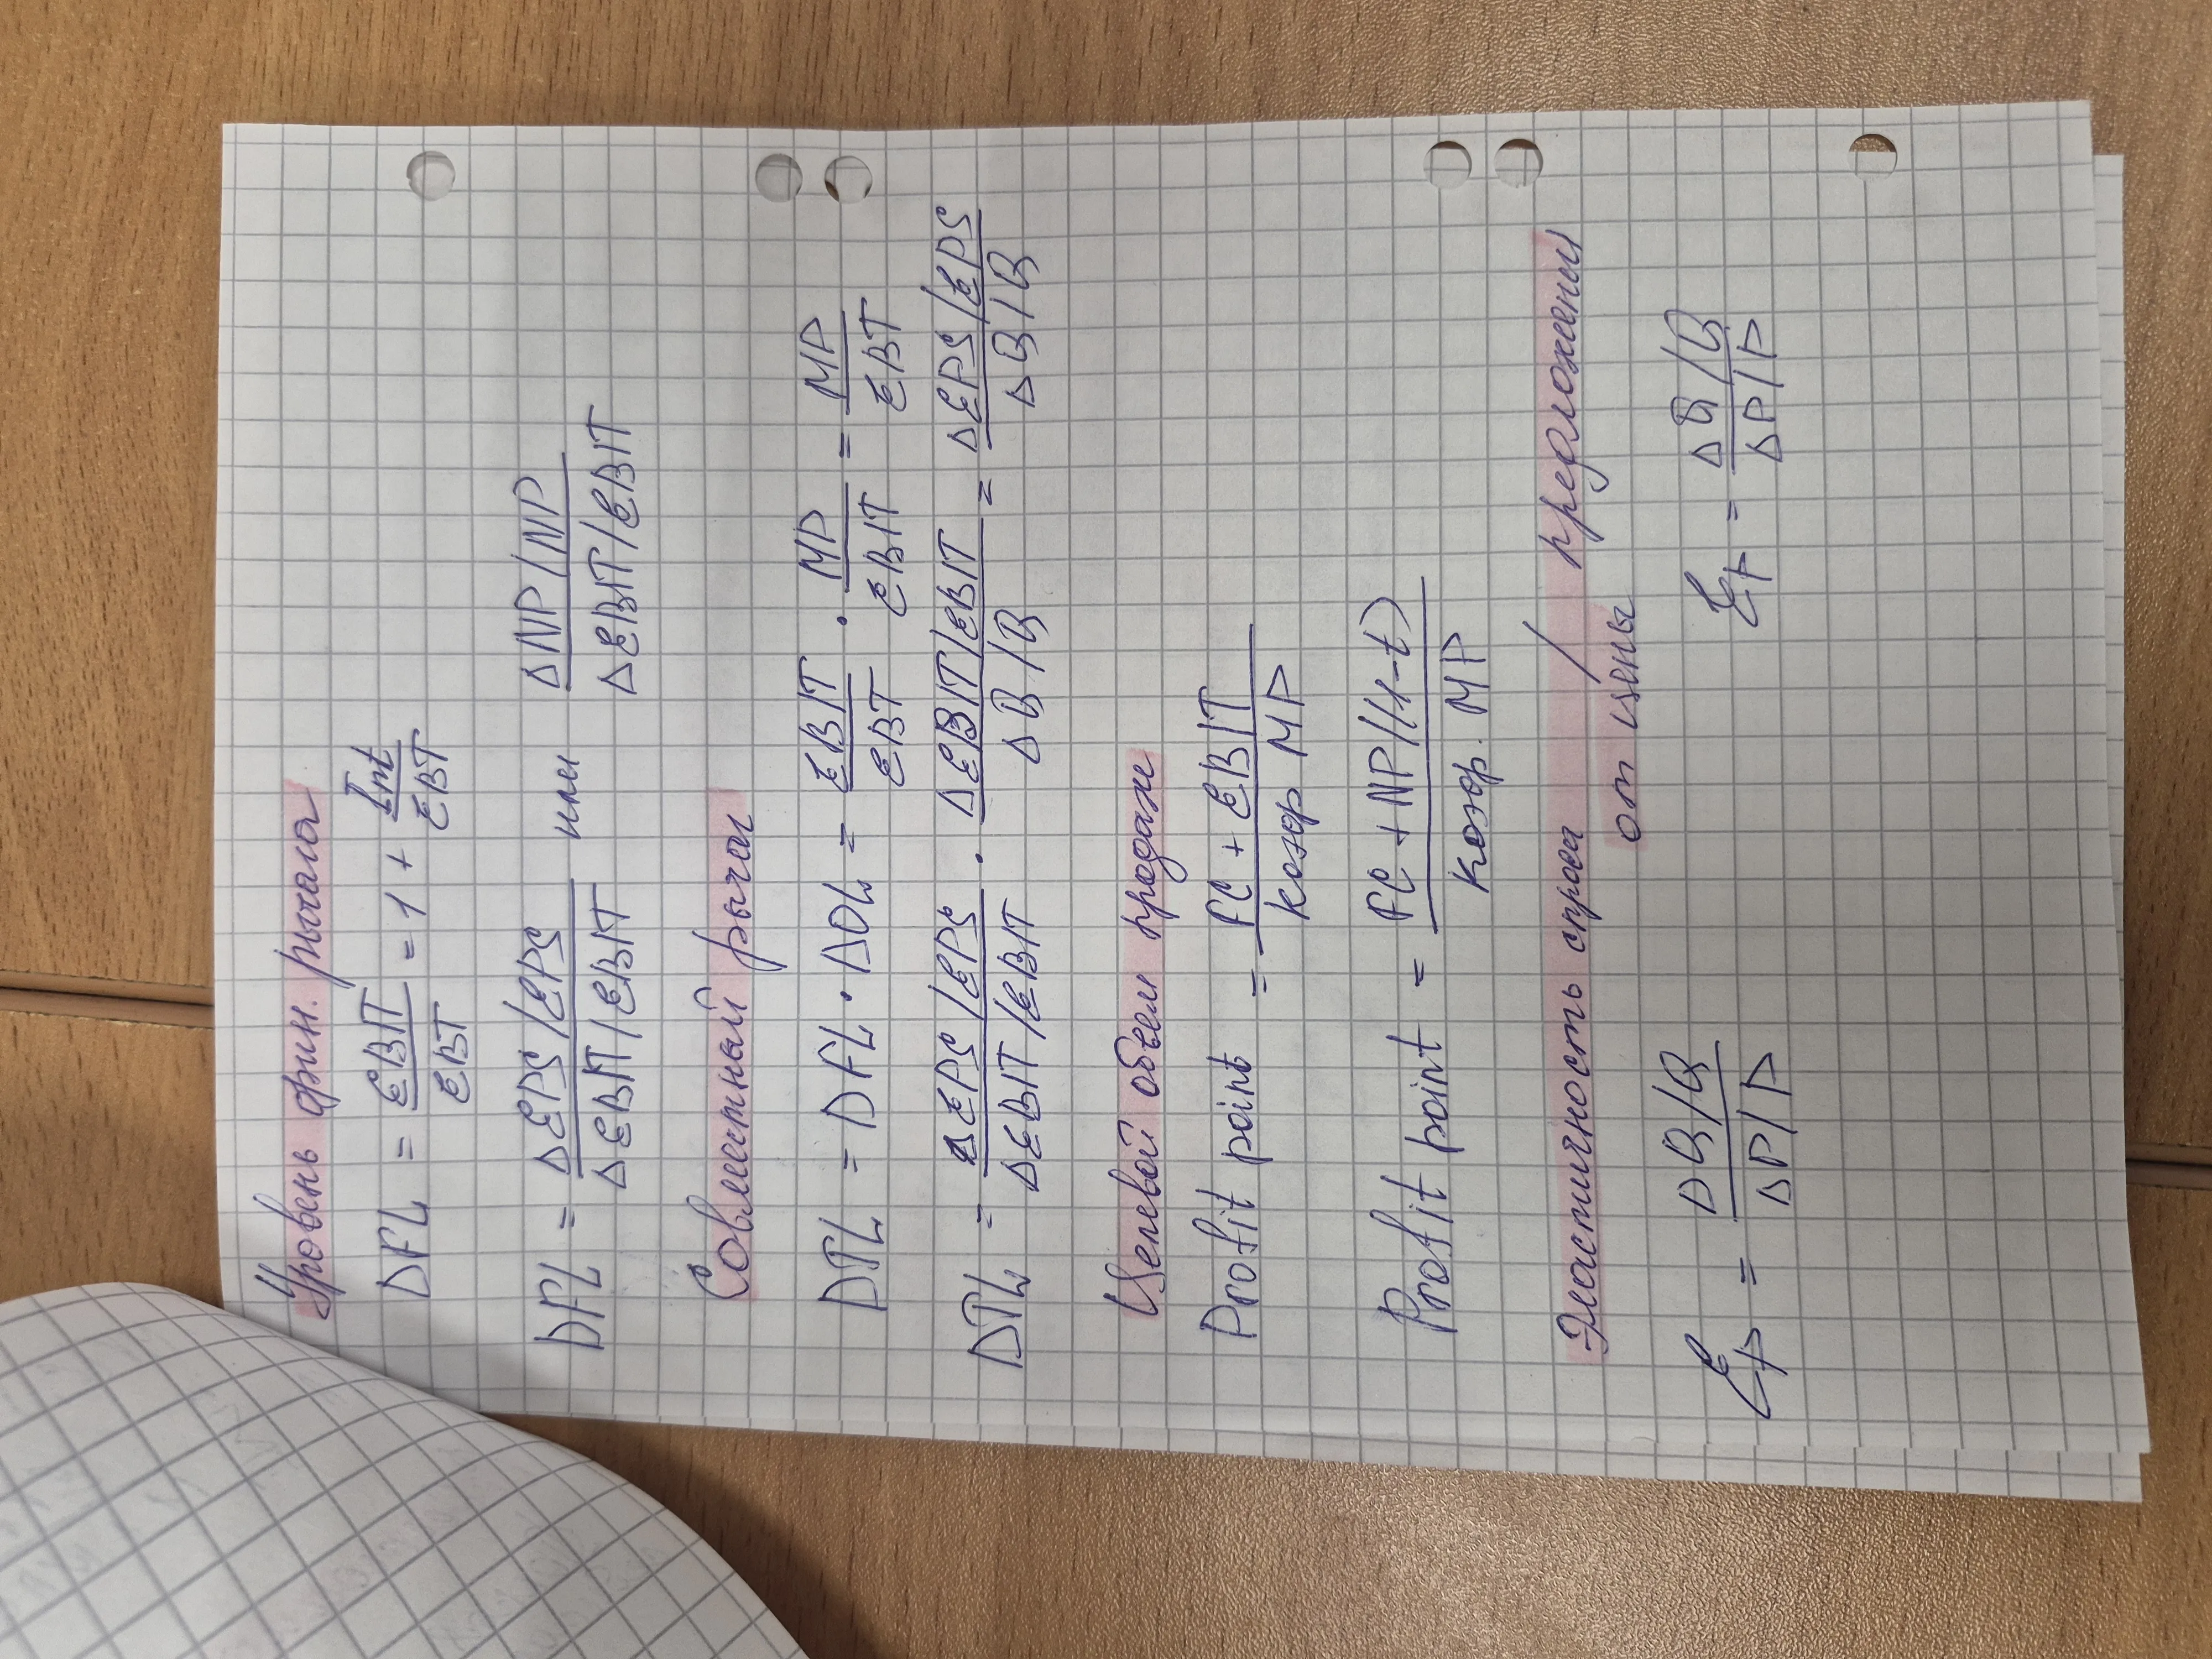 Уровень фин. рычага
DFL = EBIT/EBT = 1 + Int/EBT
DFL = (ΔEPS/EPS)/(ΔEBIT/EBIT) или (ΔNP/NP)/(ΔEBIT/EBIT)
Совместный рычаг
DTL = DFL · DOL = EBIT/EBT · MP/EBIT = MP/EBT
DTL = (ΔEPS/EPS)/(ΔEBIT/EBIT) · (ΔEBIT/EBIT)/(ΔB/B) = (ΔEPS/EPS)/(ΔB/B)
Целевой объем продаж
Profit point = (FC + EBIT)/(коэф МР)
Profit point = (FC + NP/(1-t))/(коэф. МР)
Эластичность спроса / предложения
от цены
Ep = (ΔQ/Q)/(ΔP/P) Ep = (ΔQ/Q)/(ΔP/P)